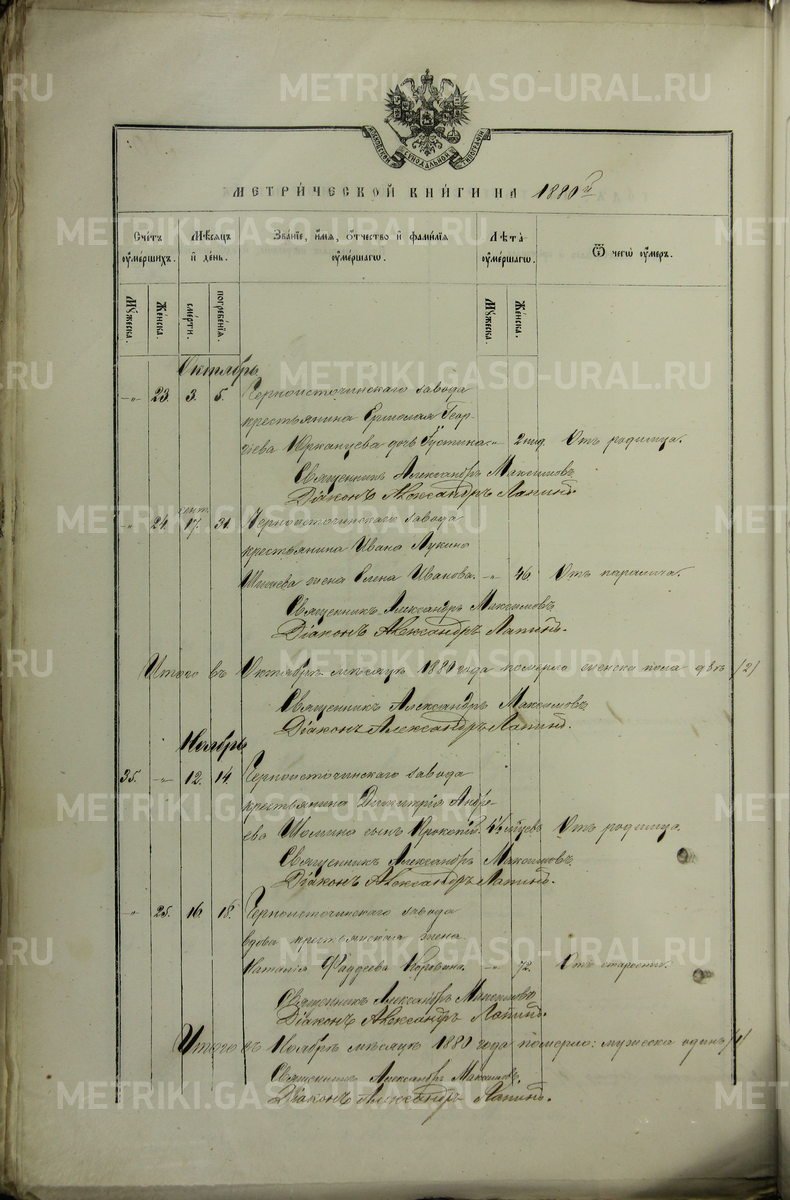 METRIKI.GASO-URAL.RU
МОСКОВСКОЙ СУНОДАЛЬНОЙ ТИПОГРАФІИ
МЕТРИЧЕСКОЙ КНИГИ НА 1880 й
Счетъ умершихъ.
Мѣсяцъ и день.
Званіе, имя, отчество и фамилія умершаго.
Лѣта умершаго.
Ѿ чегѡ умеръ.
Мужеска.
Женска.
смерти.
погребенія.
Мужеска.
Женска.
Октябрь
-„- 23. 3. 5. Черноисточинскаго завода
крестьянина Ермолая Геор-
гіева Юрканцева дочь Густина -„- 2 нед. Отъ родимца.
Священникъ Александръ Максимовъ
Діаконъ Александръ Лапинъ.
сент.
„ 24. 17. 31. Черноисточинскаго завода
крестьянина Ивана Лукина
жена Елена Иванова. -„- 46. Отъ паралича.
Священникъ Александръ Максимовъ
Діаконъ Александръ Лапинъ.
Итого въ Октябрѣ мѣсяцѣ 1880 года померло женска пола двѣ /2/
Священникъ Александръ Максимовъ
Діаконъ Александръ Лапинъ.
Ноябрь
35. -„- 12. 14. Черноисточинскаго завода
крестьянина Димитрія Андре-
ева Шомина сынъ Прокопій. Отъ родимца.
Священникъ Александръ Максимовъ
Діаконъ Александръ Лапинъ.
-„- 25. 16. 18. Черноисточинскаго завода
вдова крестьянская жена
Наталія Фаддеева Коровина. -„- 72. Отъ старости.
Священникъ Александръ Максимовъ
Діаконъ Александръ Лапинъ.
Итого въ Ноябрѣ мѣсяцѣ 1880 года померло: мужеска одинъ /1/
Священникъ Александръ Максимовъ.
Діаконъ Александръ Лапинъ.